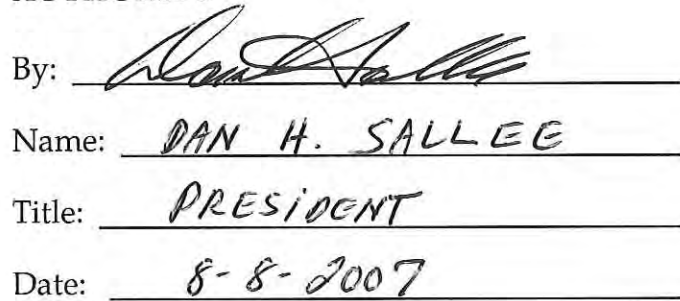 By: Dan H Sallee
Name: DAN H. SALLEE
Title: PRESIDENT
Date: 8-8-2007